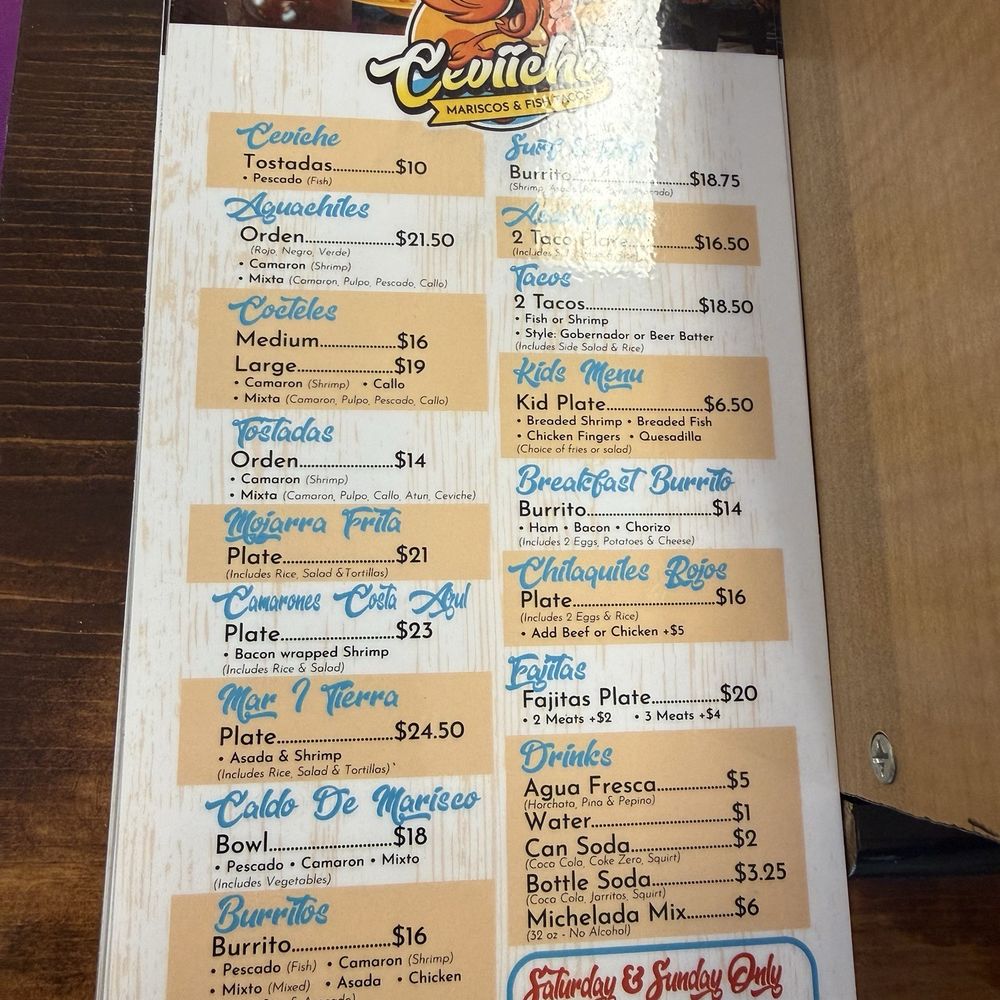 Ceviiche
MARISCOS & FISH TACOS
Ceviche
Tostadas..................$10
• Pescado (Fish)
Aguachiles
Orden..........................$21.50
(Rojo, Negro, Verde)
• Camaron (Shrimp)
• Mixta (Camaron, Pulpo, Pescado, Callo)
Cocteles
Medium......................$16
Large............................$19
• Camaron (Shrimp) • Callo
• Mixta (Camaron, Pulpo, Pescado, Callo)
Tostadas
Orden...........................$14
• Camaron (Shrimp)
• Mixta (Camaron, Pulpo, Callo, Atun, Ceviche)
Mojarra Frita
Plate................................$21
(Includes Rice, Salad & Tortillas)
Camarones Costa Azul
Plate................................$23
• Bacon wrapped Shrimp
(Includes Rice & Salad)
Mar Y Tierra
Plate.................................$24.50
• Asada & Shrimp
(Includes Rice, Salad & Tortillas)
Caldo De Marisco
Bowl...................................$18
• Pescado • Camaron • Mixto
(Includes Vegetables)
Burritos
Burrito............................$16
• Pescado (Fish) • Camaron (Shrimp)
• Mixto (Mixed) • Asada • Chicken
Surf &
Burrito...................................$18.75
(Shrimp,
2 Taco Plate...................$16.50
(Includes
Tacos
2 Tacos.................................$18.50
• Fish or Shrimp
• Style: Gobernador or Beer Batter
(Includes Side Salad & Rice)
Kids Menu
Kid Plate............................$6.50
• Breaded Shrimp • Breaded Fish
• Chicken Fingers • Quesadilla
(Choice of fries or salad)
Breakfast Burrito
Burrito...................................$14
• Ham • Bacon • Chorizo
(Includes 2 Eggs, Potatoes & Cheese)
Chilaquiles Rojos
Plate........................................$16
(Includes 2 Eggs & Rice)
• Add Beef or Chicken +$5
Fajitas
Fajitas Plate...................$20
• 2 Meats +$2 • 3 Meats +$4
Drinks
Agua Fresca....................$5
(Horchata, Pina & Pepino)
Water.......................................$1
Can Soda............................$2
(Coca Cola, Coke Zero, Squirt)
Bottle Soda.......................$3.25
(Coca Cola, Jarritos, Squirt)
Michelada Mix.............$6
(32 oz - No Alcohol)
Saturday & Sunday Only